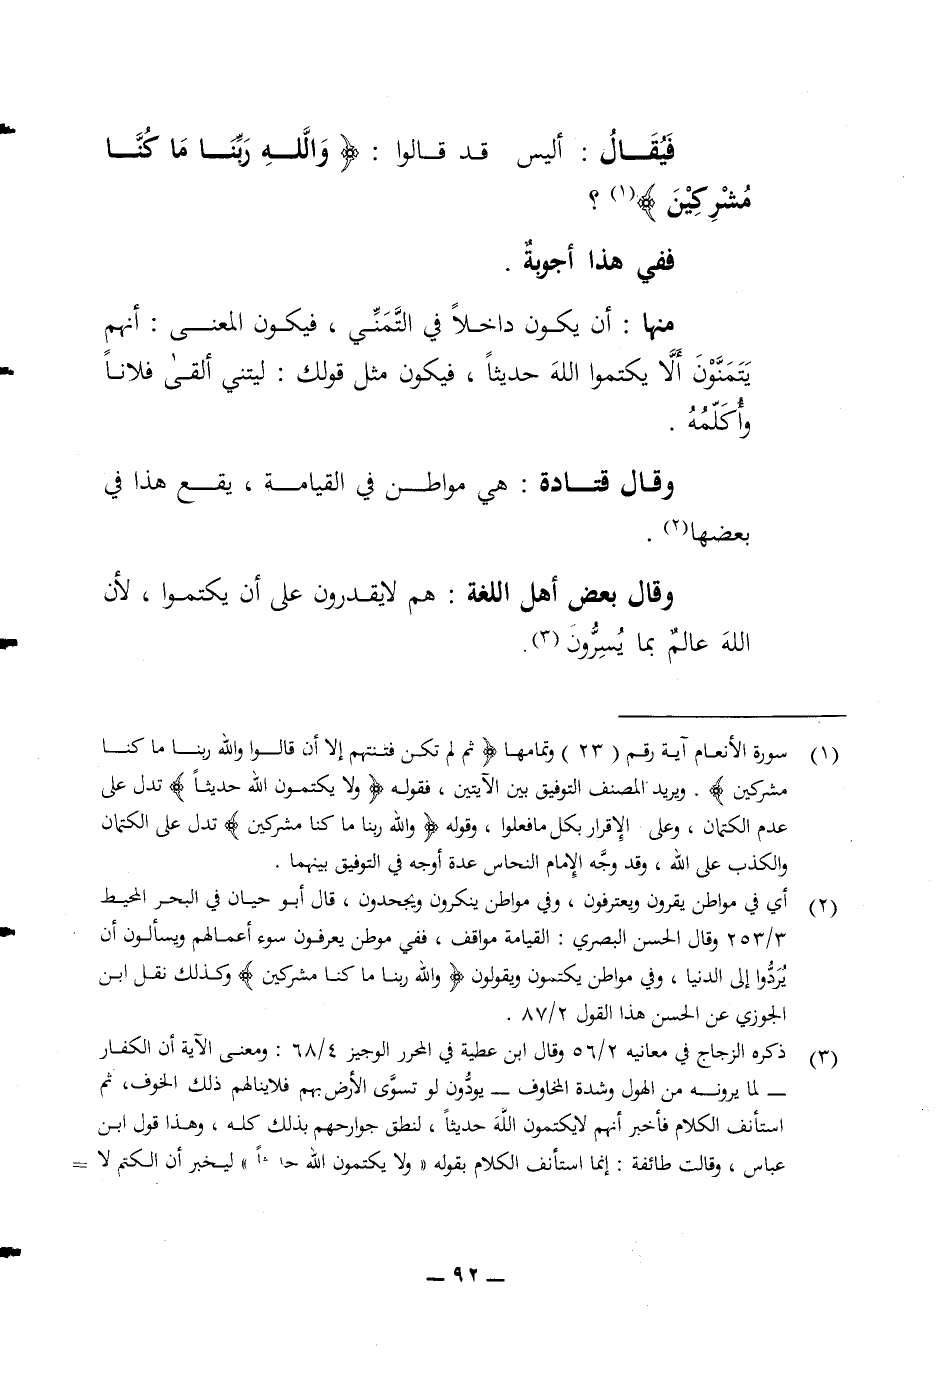 فَيُقَالُ : أليس قد قالوا : ﴿ وَاللهِ رَبِّنَا مَا كُنَّا
مُشْرِكِيْنَ ﴾(١) ؟
ففي هذا أجوبةٌ .
منها : أن يكون داخلاً في التَّمَنِّي ، فيكون المعنى : أنهم
يَتَمَنَّوْنَ أَلَّا يكتموا اللهَ حديثاً ، فيكون مثل قولك : ليتني ألقىٰ فلاناً
وأُكَلِّمُهُ .
وقال قتادة : هي مواطن في القيامة ، يقع هذا في
بعضها(٢) .
وقال بعض أهل اللغة : هم لايقدرون على أن يكتموا ، لأن
اللهَ عالمٌ بما يُسِرُّونَ (٣).
(١) سورة الأنعام آية رقم ( ٢٣ ) وتمامها ﴿ ثم لم تكن فتنتهم إلا أن قالوا والله ربنا ما كنا
مشركين ﴾ . ويريد المصنف التوفيق بين الآيتين ، فقوله ﴿ ولا يكتمون الله حديثاً ﴾ تدل على
عدم الكتمان ، وعلى الإقرار بكل مافعلوا ، وقوله ﴿ والله ربنا ما كنا مشركين ﴾ تدل على الكتمان
والكذب على الله ، وقد وجَّه الإمام النحاس عدة أوجه في التوفيق بينهما .
(٢) أي في مواطن يقرون ويعترفون ، وفي مواطن ينكرون ويجحدون ، قال أبو حيان في البحر المحيط
٢٥٣/٣ وقال الحسن البصري : القيامة مواقف ، ففي موطن يعرفون سوء أعمالهم ويسألون أن
يُرَدُّوا إلى الدنيا ، وفي مواطن يكتمون ويقولون ﴿ والله ربنا ما كنا مشركين ﴾ وكذلك نقل ابن
الجوزي عن الحسن هذا القول ٨٧/٢ .
(٣) ذكره الزجاج في معانيه ٥٦/٢ وقال ابن عطية في المحرر الوجيز ٦٨/٤ : ومعنى الآية أن الكفار
ــ لما يرونه من الهول وشدة المخاوف ــ يودُّون لو تسوَّى الأرض بهم فلاينالهم ذلك الخوف، ثم
استأنف الكلام فأخبر أنهم لايكتمون اللَّهَ حديثاً ، لنطق جوارحهم بذلك كله ، وهذا قول ابن
عباس ، وقالت طائفة : إنما استأنف الكلام بقوله « ولا يكتمون الله » ليخبر أن الكتم لا =
ــ ٩٢ ــ